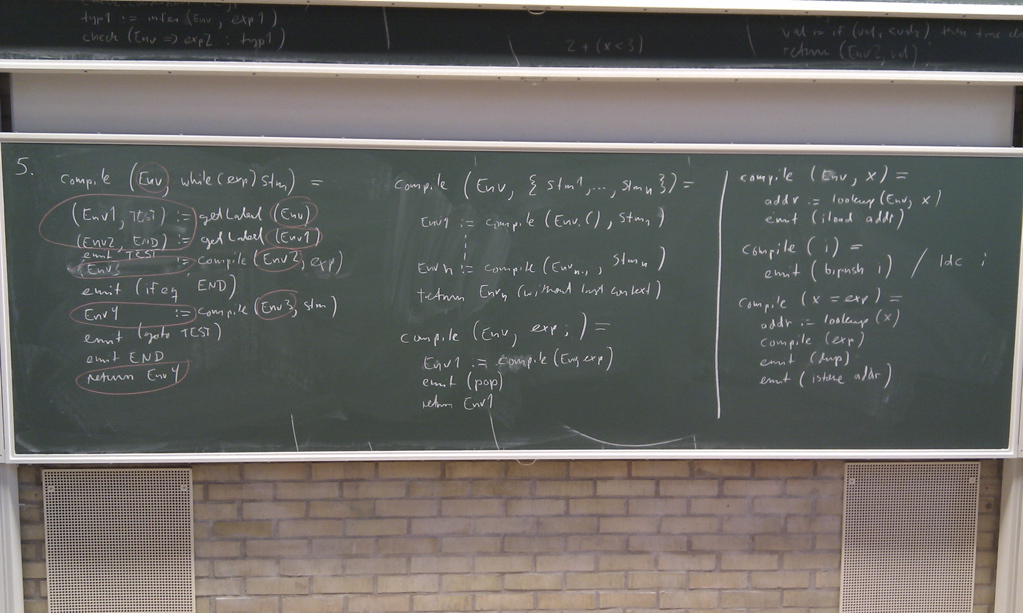 typ1 := infer (Env, exp1)
check (Env => exp2 : typ1)
2 + (x < 3)
return (Env2, val)
5.
compile (Env, while (exp) stm) =
(Env1, TEST) := getLabel (Env)
(Env2, END) := getLabel (Env1)
emit TEST
Env3 := compile (Env2, exp)
emit (ifeq END)
Env4 := compile (Env3, stm)
emit (goto TEST)
emit END
return Env4
compile (Env, { stm1, ..., stmn }) =
Env1 := compile (Env.(), stm1)
Envn := compile (Envn-1, stmn)
return Envn (without last context)
compile (Env, exp;) =
Env1 := compile (Env, exp)
emit (pop)
return Env1
compile (Env, x) =
addr := lookup (Env, x)
emit (iload addr)
compile (i) =
emit (bipush i) / ldc i
compile (x = exp) =
addr := lookup (x)
compile (exp)
emit (dup)
emit (istore addr)